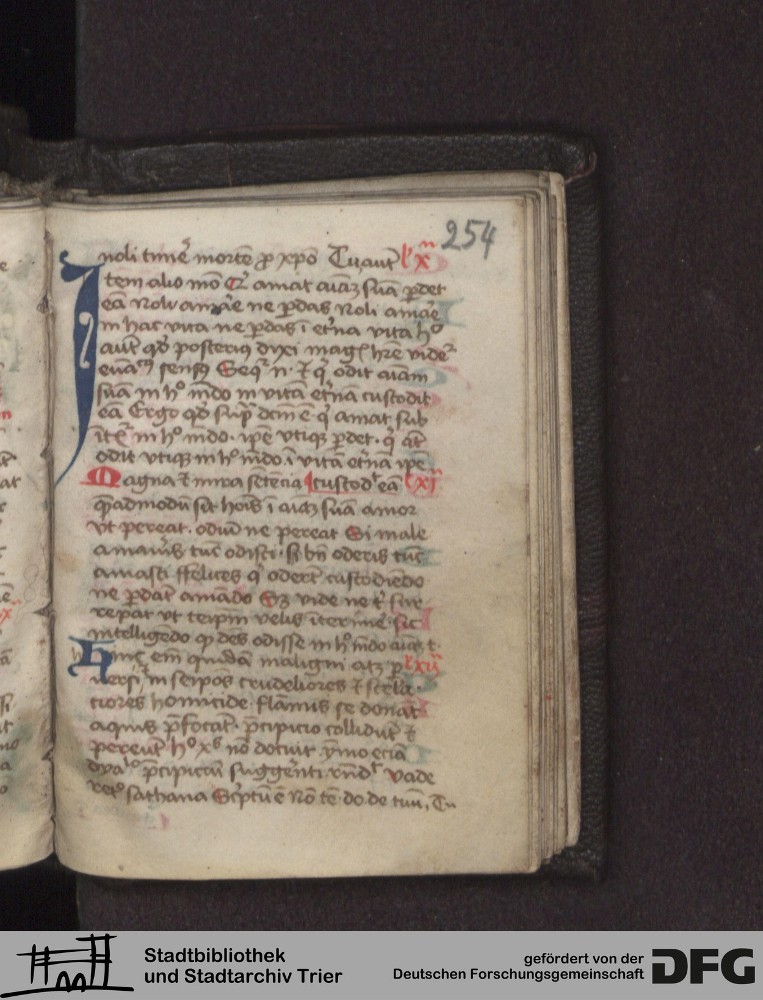 254
noli timē mortē p xpō Tu autē lx
Item alio mō Qi amat aīaȝ suā pdet
eā Noli amāe ne pdas Noli amāe
in hac vita ne pdas ī etna vita hº
aut qd posterius dixi mag hrē videᵗ
euāᵐ sensū Seqᵗ n· ⁊ qi odit aīam
suā in hº mdo in vitā etnā custodit
eā Ergo qd sup dcm ē qi amat sub
in hº mdo· ipē vtiqȝ pdet· qi at
odit vtiqȝ in hº mdo· ī vitā etnā ipē
Magna ⁊ mira sētēcia custod eā lxi
qēadmodū sit hois ī aīaȝ suā amor
vt pereat· odiū ne pereat Si male
amauis tūc odisti· si bn oderis tūc
amasti Felices qi odert custodiēdo
ne pdāt amādo Sȝ vide ne t sur
repat vt teipm velis iterime· sic
intelligēdo qp des odisse in hº mdo aīaȝ t·
Hinc em quidā maligni atqȝ p lxii
uersi in seipos crudeliores ⁊ scela
ciores homicide flāmis se donāt
aquis pfocāt· pcipicio collidūt ⁊
pereūt hº xs nō docuit ymo eciā
dyalº pcipiciū suggenti rnd Vade
retº sathana Scptū ē Nō tē· do· de tuū, Tu
Stadtbibliothek
und Stadtarchiv Trier
gefördert von der
Deutschen Forschungsgemeinschaft
DFG